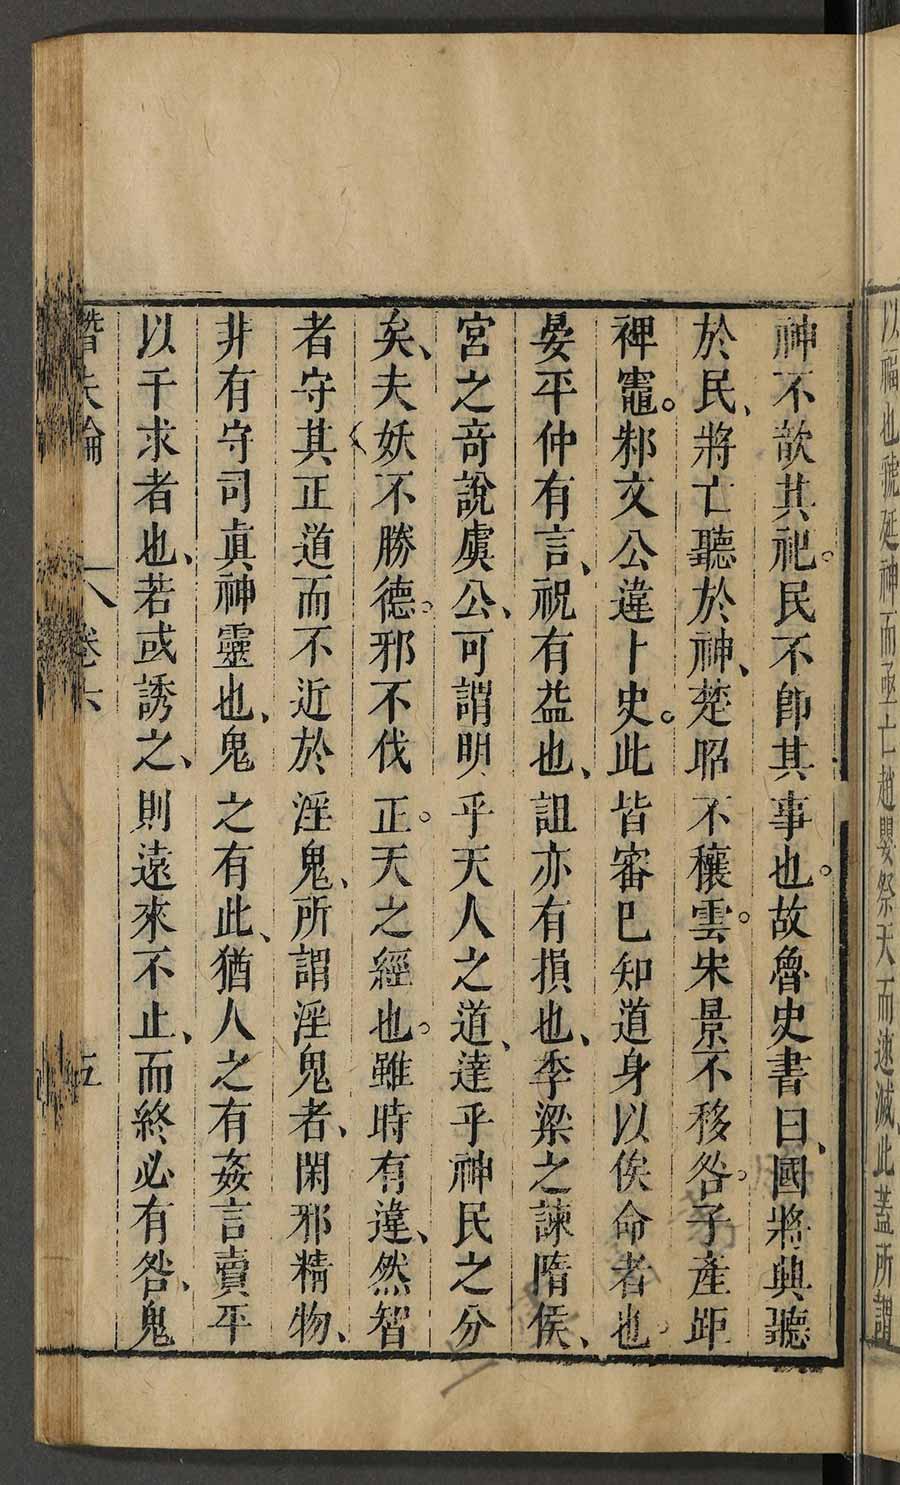 以福也虢延神而亟亡趙嬰祭天而速滅此蓋所謂
神不歆其祀。民不卽其事也。故魯史書曰、國將興聽
於民、將亡聽於神、楚昭不穰雲。宋景不移咎。子產距
裨竈。邾文公違卜史。此皆審已知道身以俟命者也。
晏平仲有言、祝有益也、詛亦有損也、季梁之諫隋侯、
宮之竒說虞公、可謂明乎天人之道、達乎神民之分
矣、夫妖不勝德。邪不伐正。天之經也。雖時有違、然智
者守其正道而不近於淫鬼、所謂淫鬼者、閑邪精物、
非有守司眞神靈也、鬼之有此、猶人之有姦言賣平
以干求者也、若或誘之、則遠來不止、而終必有咎、鬼
潛夫論
卷六
五